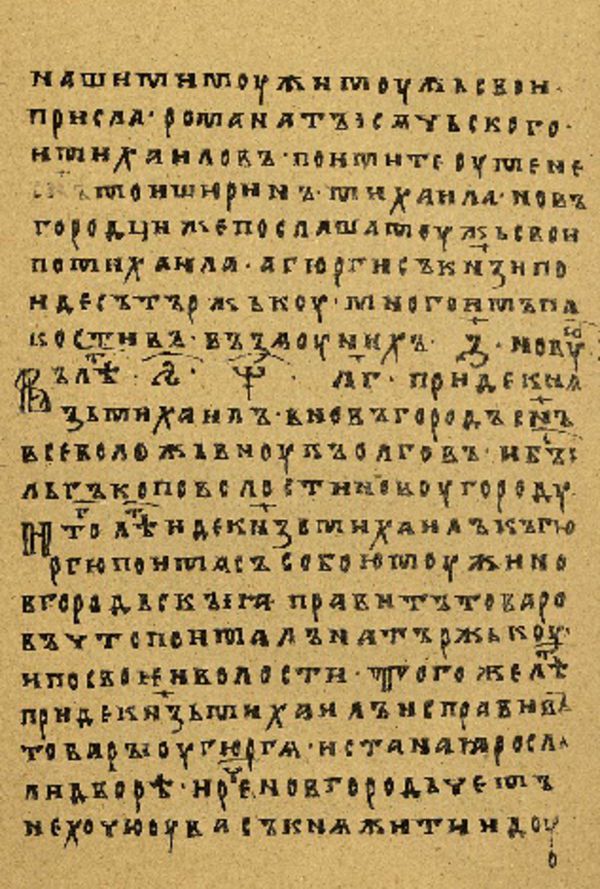 нашими моужи моужь свои·
присла· романа тъⷤсѧчьского·
и михаиловъ· поимите оу мене
мои шюринъ· михаила· новъ
городци же послаша моужь свои
по михаила· а гюрги съ кнѧзи по
иде съ търъжькоу· много имъ па
кости въ· възѧ оу нихъ· ҙ· новоу
Въ лѣⷮ· ҂ѕ· ѱ· лг· приде кнѧ
зь михаилъ в новъгородъ снъ
всеволожь вноукъ олговъ· и бъⷭ
льгъко по волости новоугородоу·
Ито лѣⷮ иде кнѧзь михаилъ къ гю
ргю поима съ собою моужи но
вгородьскыꙗ правитъ товаро
въ что поималъ на търъжькоу·
и по своеи волости· Того же лѣⷮ
приде кнѧзь михаилъ не справивъ
товаръ оу гюргѧ· и ста на ꙗросла
ли дворѣ· и реⷱ новгородьчемъ
не хочю оу васъ кнѧжити идоу